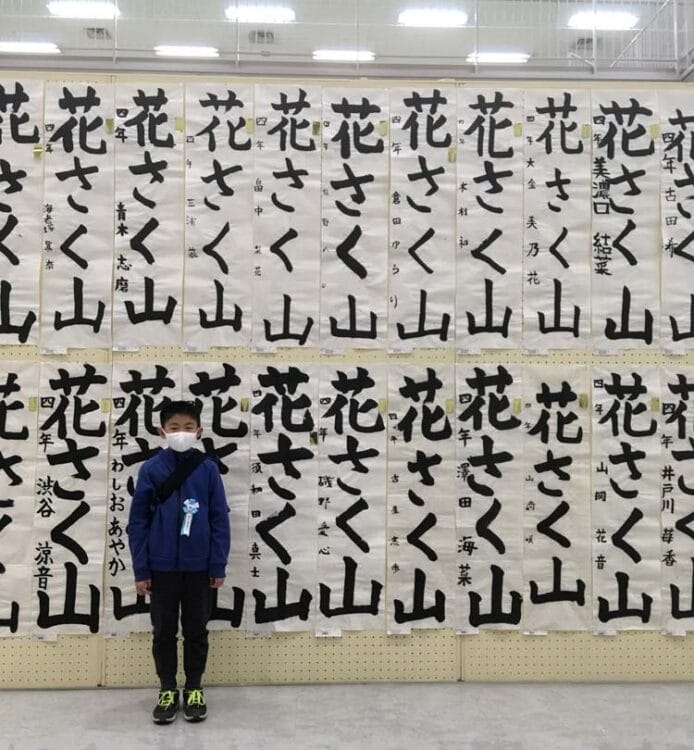 花さく山
四年 古田 希
花さく山
四年 美濃口 結菜
花さく山
四年 大金 美乃花
花さく山
四年 木村 和
花さく山
四年 倉田 ゆらり
花さく山
四年
花さく山
四年 畠中 梨花
花さく山
四年 三浦
花さく山
四年 青木 志磨
花さく山
四年
花さく山
花さく山
四年 井戸川 苺香
花さく山
四年 山岡 花音
花さく山
四年
花さく山
四年 澤田 海菜
花さく山
四年
花さく山
四年 磯野 愛心
花さく山
四年 須和田 真士
花
山
花さく山
四年 わしお あやか
花さく山
四年 渋谷 涼音
花さく山